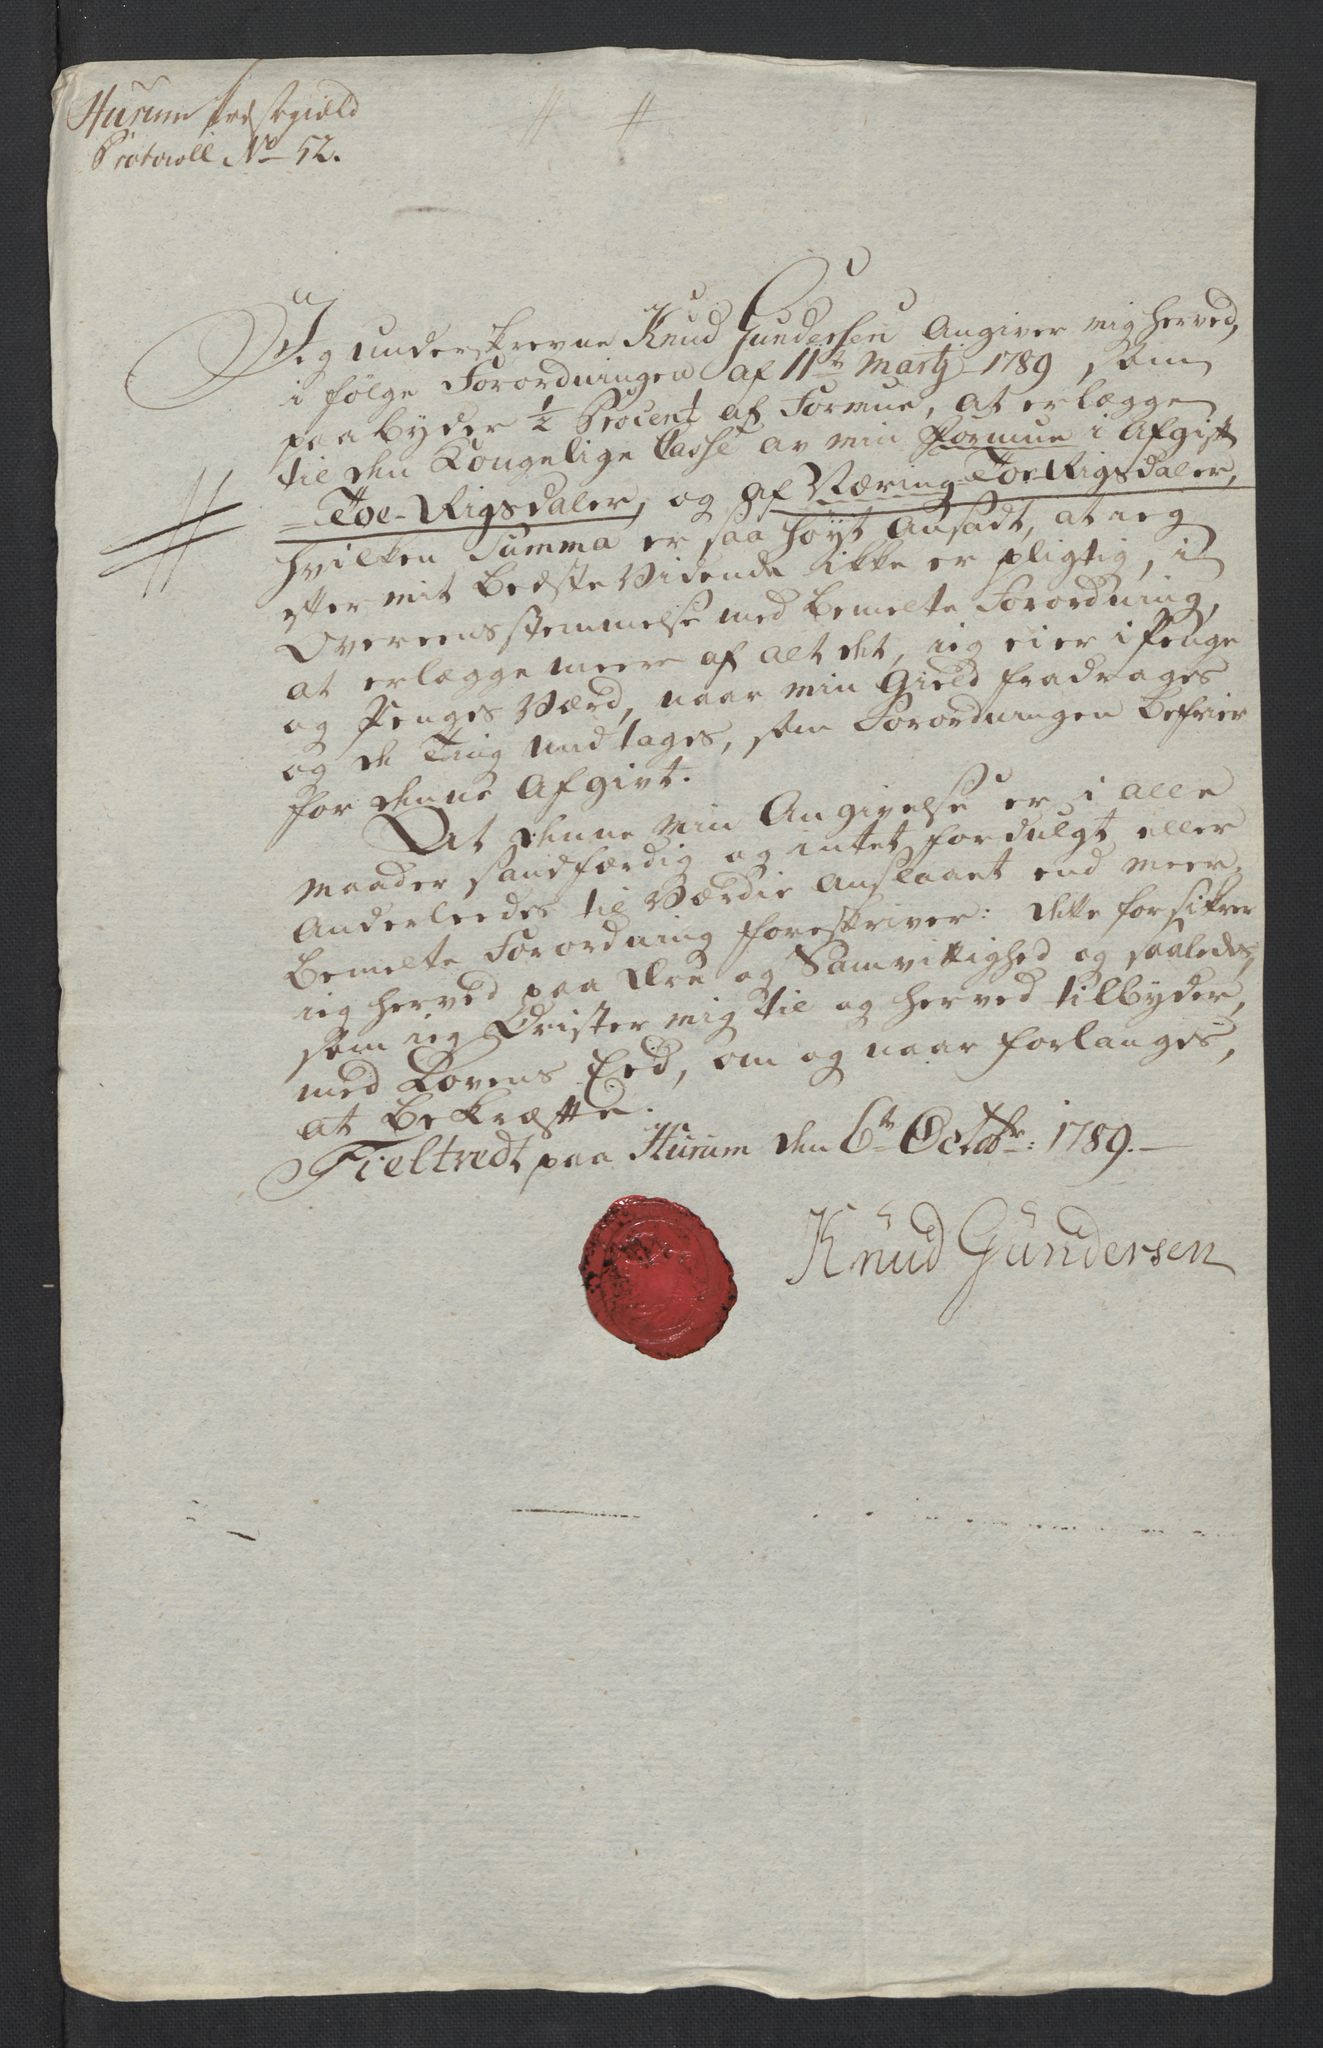 Hurum Præstegiæld
Protocoll No 52.
Jeg underskrevne Knud Gundersen Angiver mig herved,
i følge Forordningen af 11te Martj 1789, som
paabyder ½ Procent af Formue, at erlægge
til den Kongelige Casse av min Formue i Afgift
Toe Rigsdaler, og af Næring Toe Rigsdaler,
hvilken Summa er saa høyt Ansadt, at ieg
efter mit bedste Vidende ikke er pligtig, i
Overeensstemmelse med bemelte Forordning,
at erlægge meere af alt det, ieg eier i Penge
og Penges Værd, naar min Gield fradrages
og de Ting undtages, som Forordningen befrier
for denne Afgivt.
At denne min Angivelse er i alle
maader sandfærdig og intet fordulgt eller
Anderleedes til Værdie Anslaaet end meer-
bemelte Forordning foreskriver: dette forsikrer
ieg herved paa Ære og Samvittighed og saaledes,
som ieg Drister mig til og herved tilbyder,
med Lovens Eed, om og naar forlanges,
at bekræfte.
Fieltvedt paa Hurum den 6te Octobr: 1789.
Knud Gundersen